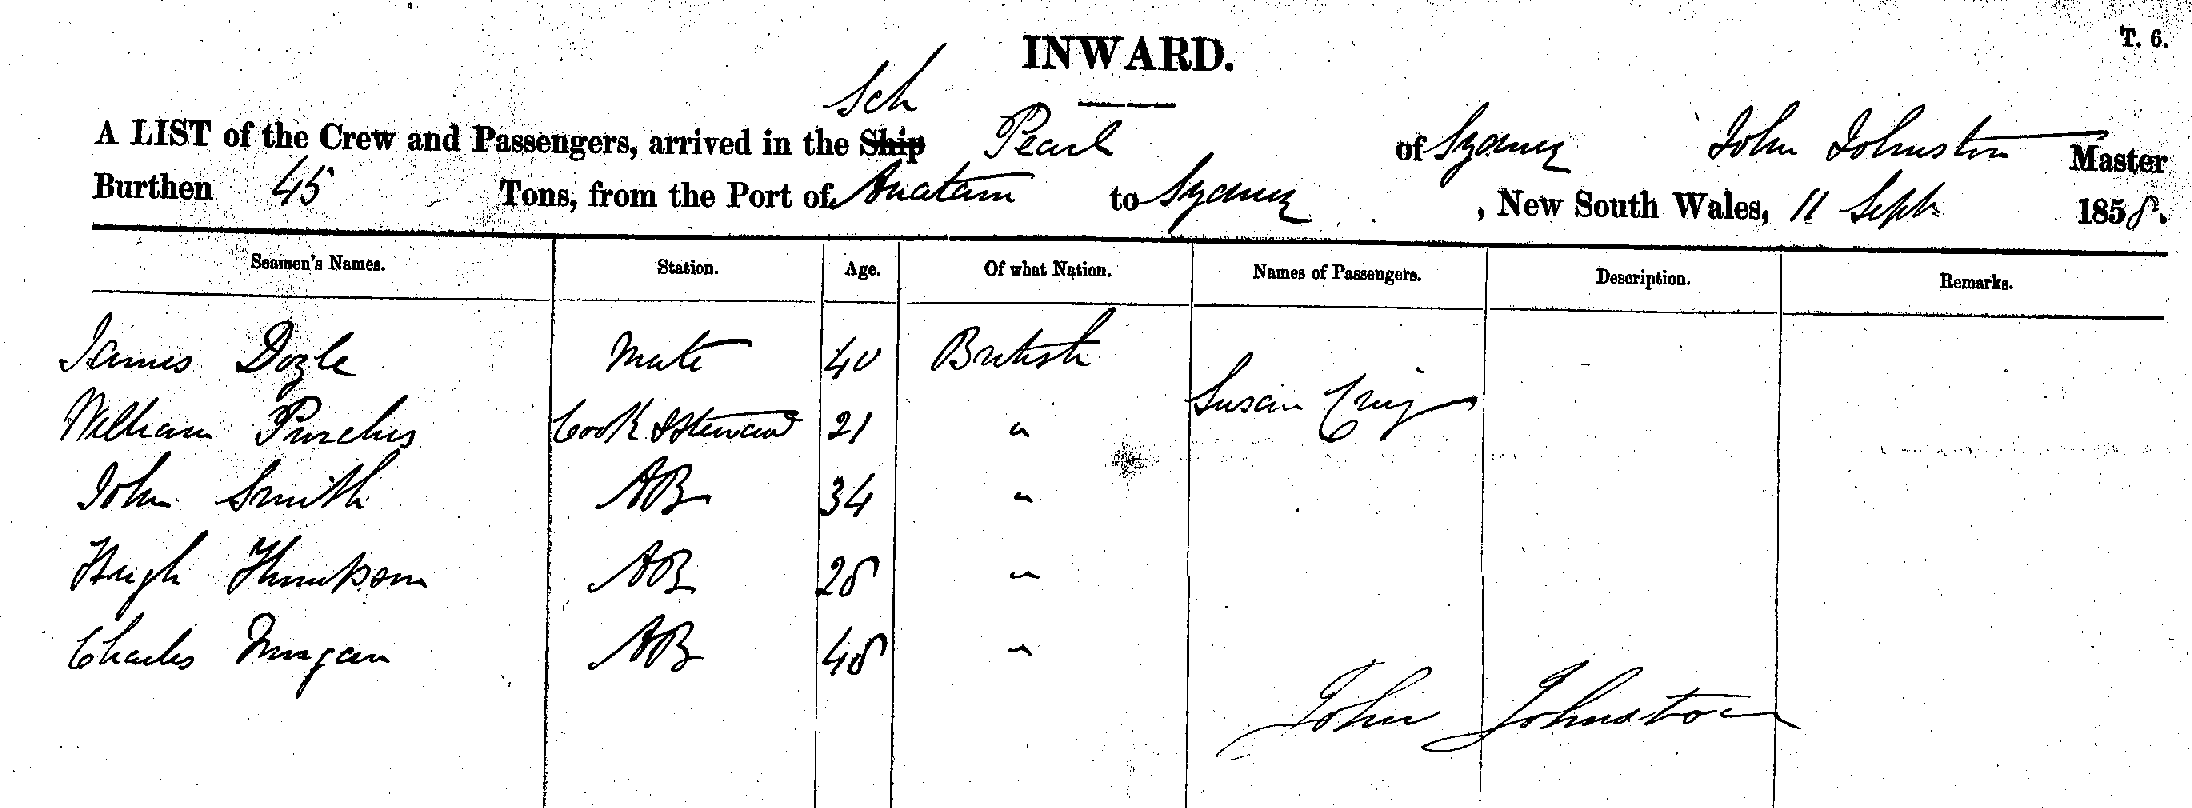 T. 6.
INWARD.
Sch
A LIST of the Crew and Passengers, arrived in the Ship Pearl of Sydney John Johnston Master
Burthen 45 Tons, from the Port of Anatam to Sydney, New South Wales, 11 Sept 1858.
Seamen's Names. Station. Age. Of what Nation. Names of Passengers. Description. Remarks.
James Doyle Mate 40 British
Susan
William Purches Cook & Steward 21 "
John Smith AB 34 "
Hugh Thompson AB 28 "
Charles Morgan AB 48 "
John Johnston